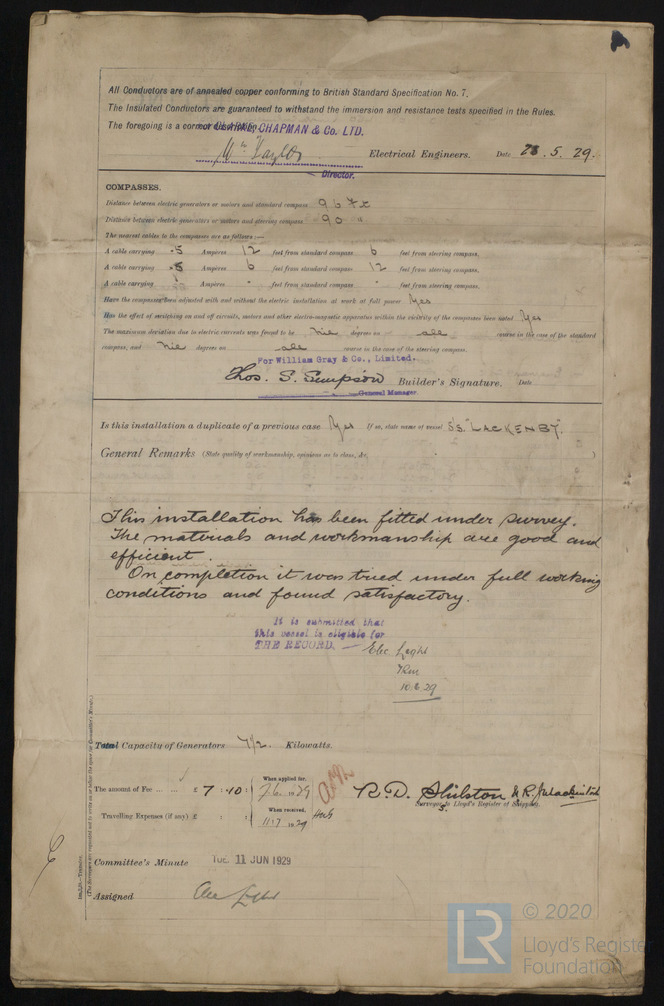 All Conductors are of annealed copper conforming to British Standard Specification No. 7.
The Insulated Conductors are guaranteed to withstand the immersion and resistance tests specified in the Rules.
The foregoing is a correct description.
FOR CLARKE, CHAPMAN & Co. LTD.
Wm Taylor Electrical Engineers. Date 28. 5. 29.
Director.
COMPASSES.
Distance between electric generators or motors and standard compass 96 ft
Distance between electric generators or motors and steering compass 90 "
The nearest cables to the compasses are as follows:—
A cable carrying .5 Ampères 12 feet from standard compass 6 feet from steering compass.
A cable carrying .5 Ampères 6 feet from standard compass 12 feet from steering compass.
A cable carrying Ampères feet from standard compass feet from steering compass.
Have the compasses been adjusted with and without the electric installation at work at full power Yes
Has the effect of switching on and off circuits, motors and other electro-magnetic apparatus within the vicinity of the compasses been noted Yes
The maximum deviation due to electric currents was found to be Nil degrees on all course in the case of the standard
compass, and Nil degrees on all course in the case of the steering compass.
For William Gray & Co., Limited.
Thos. S. Simpson Builder's Signature. Date
General Manager
Is this installation a duplicate of a previous case Yes If so, state name of vessel S.S. "LACKENBY".
General Remarks (State quality of workmanship, opinions as to class, &c.)
This installation has been fitted under survey.
The materials and workmanship are good and
efficient.
On completion it was tried under full working
conditions and found satisfactory.
It is submitted that
this vessel is eligible for
THE RECORD. — Elec Light
10.6.29
Total Capacity of Generators 7 1/2 Kilowatts.
The amount of Fee ... ... £ 7 : 10 :
When applied for,
7.6.1929
Travelling Expenses (if any) £ : :
When received,
11.7.1929
R. D. Shilston & R. J. Mackintosh
Surveyors to Lloyd's Register of Shipping.
Committee's Minute TUE. 11 JUN 1929
Assigned Elec Light
(The Surveyors are requested not to write on or below the space for Committee's Minute.)
© 2020
LR
Lloyd's Register
Foundation